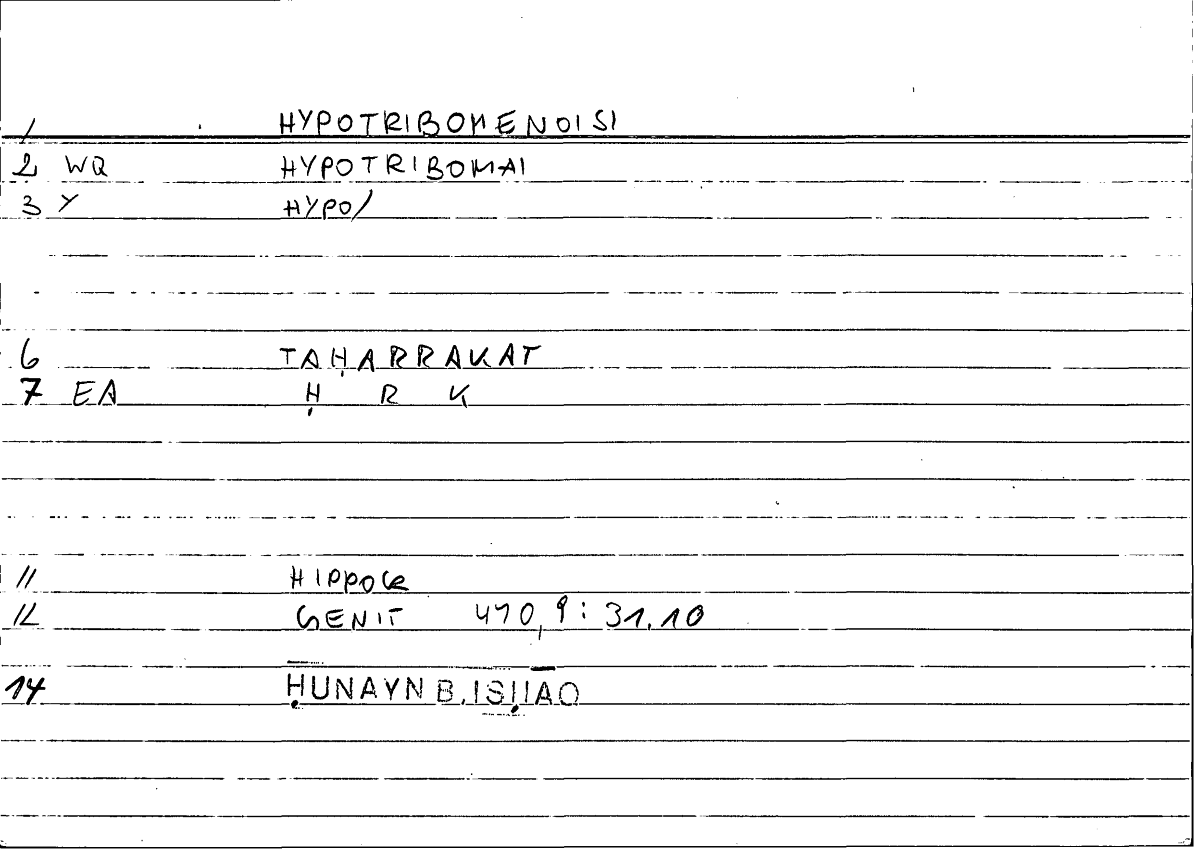 1 HYPOTRIBOMENOISI
2 WQ HYPOTRIBOMAI
3 Y HYPO/
6 TAḤARRAKAT
7 EA Ḥ R K
11 HIPPOCR
12 GENIT 470,9: 31.10
14 ḤUNAYN B. ISḤĀQ